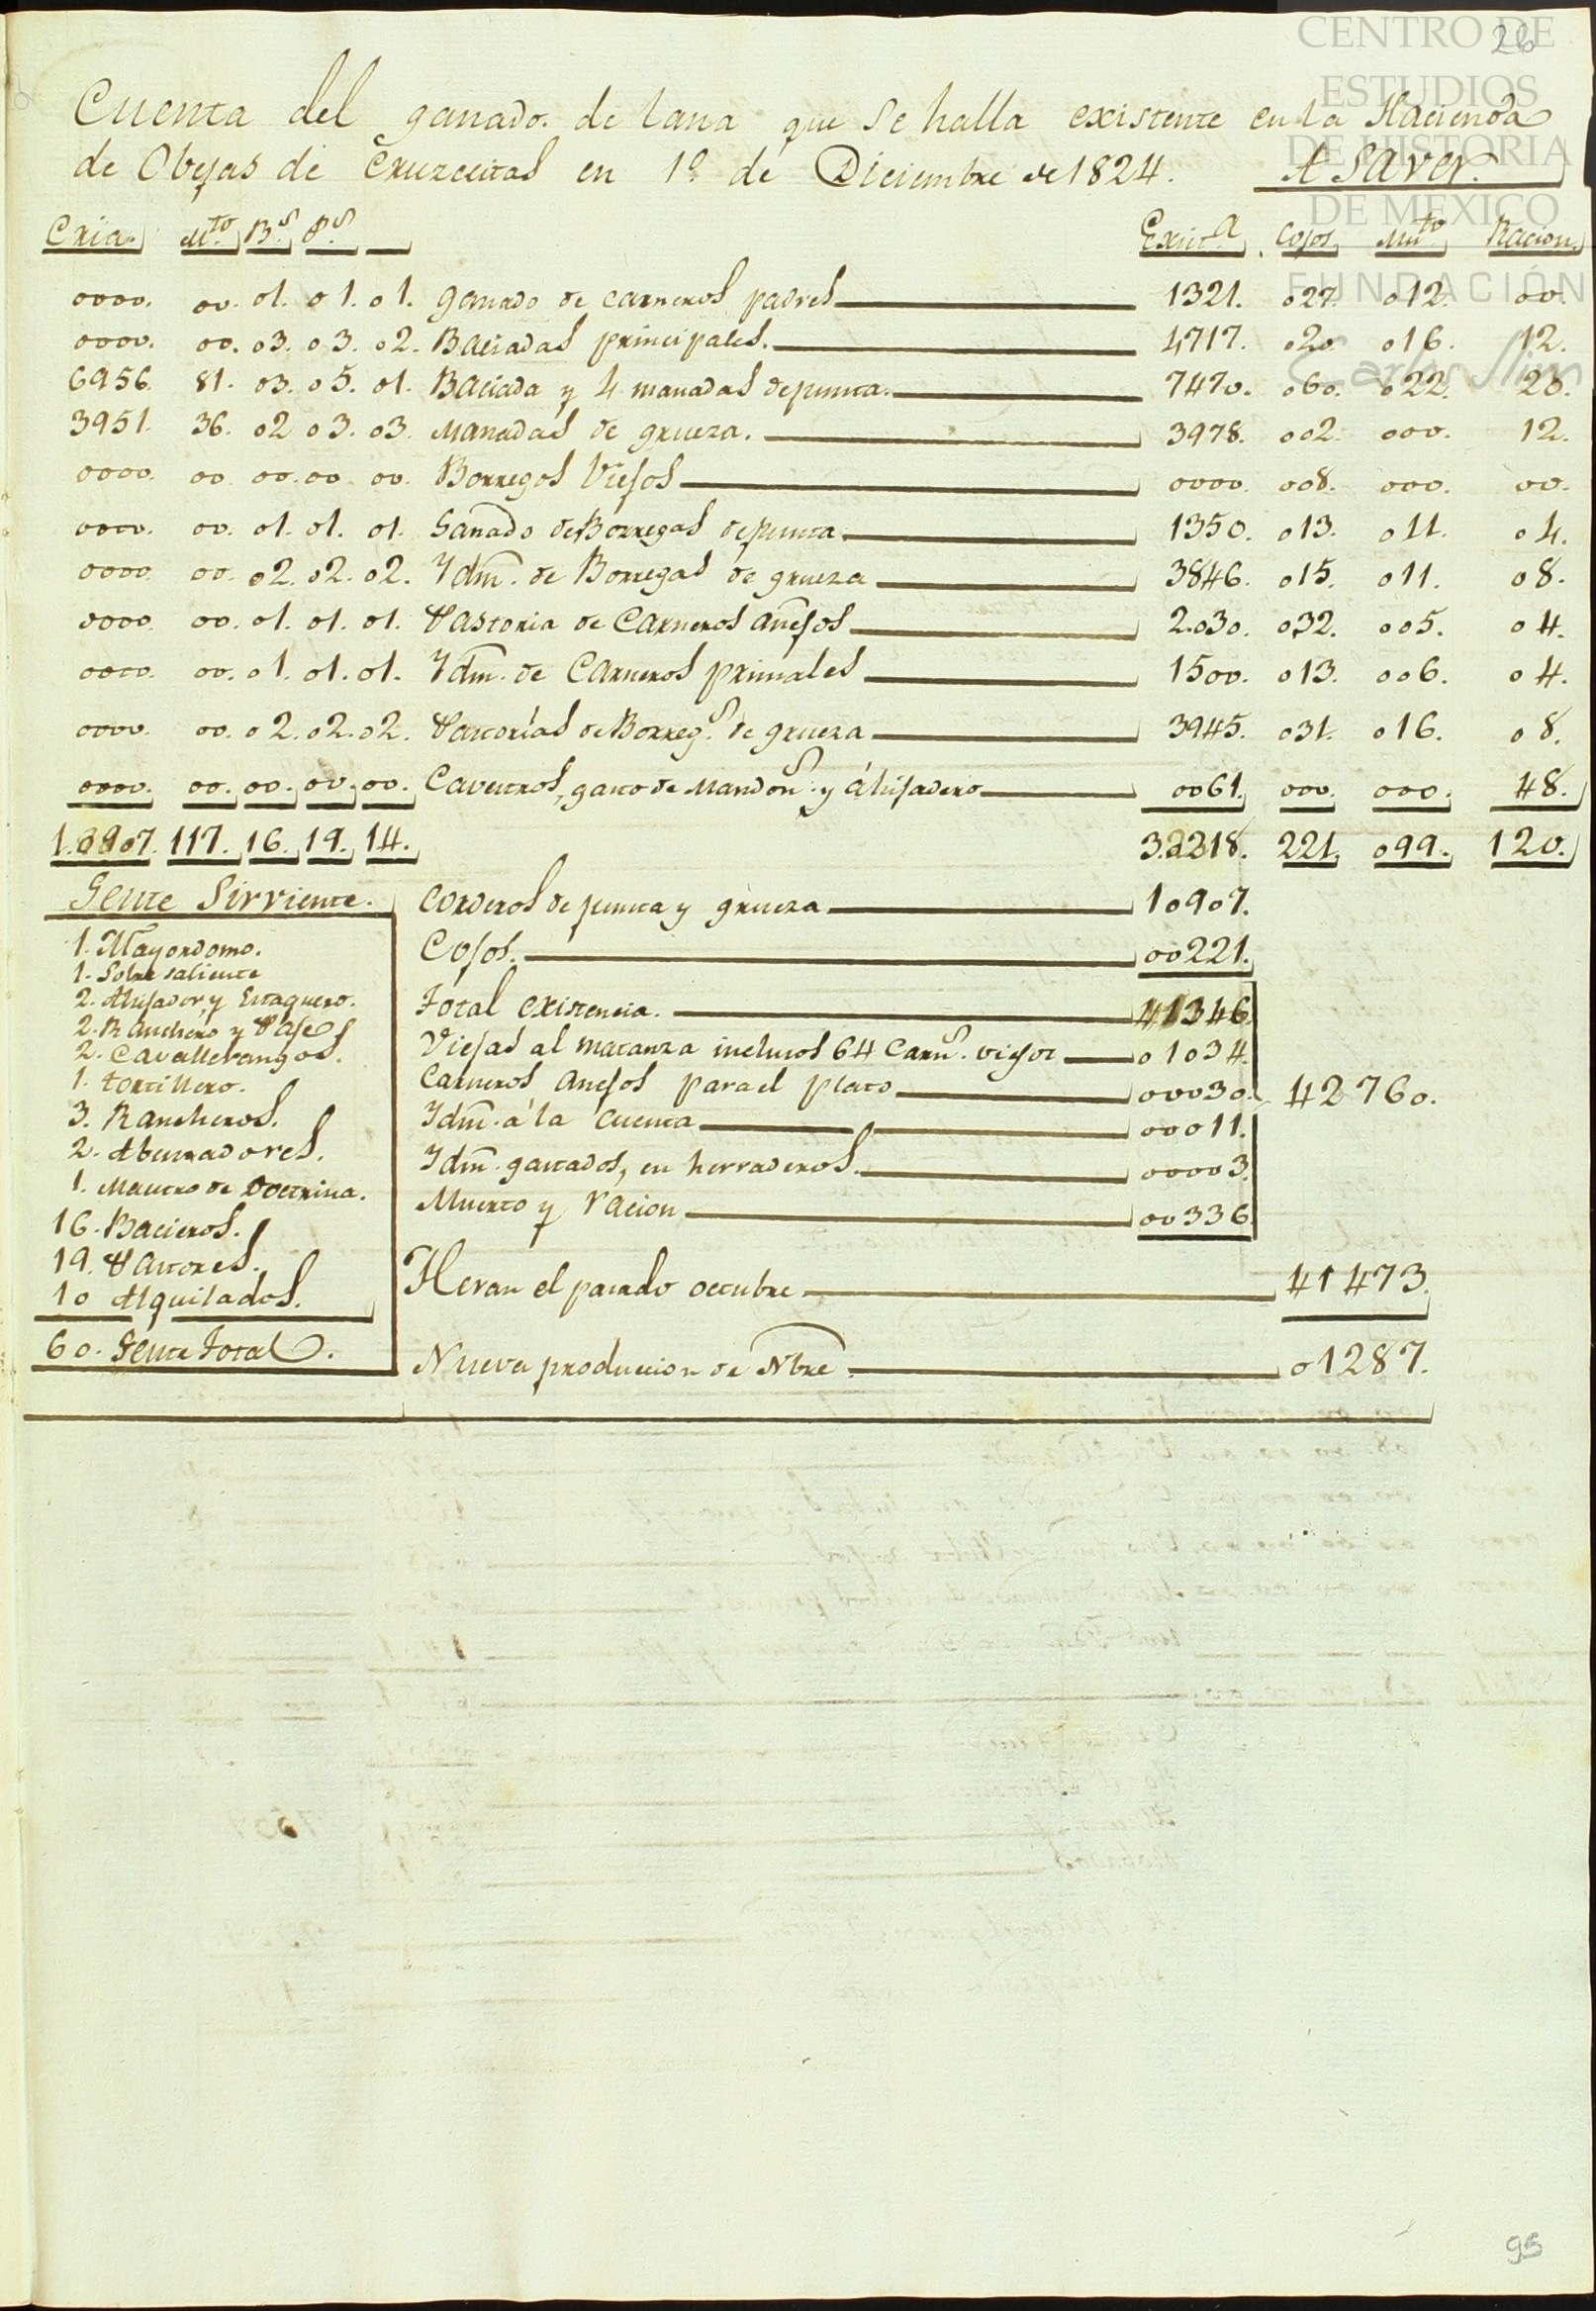 26
CENTRO DE
ESTUDIOS
DE HISTORIA
DE MEXICO
FUNDACIÓN
Carlos Slim
Cuenta del ganado de lana que se halla existente en la Hacienda
de Obejas de Cruzecitas en 1º de Diciembre de 1824. A Saver.
Cria. Mto Bs Ps Exist.a Cojos. Mu.to Racion.
0000. 00. 01. 01. 01. Ganado de carneros padres 1321. 027. 012. 00.
0000. 00. 03. 03. 02. Baciadas principales. 4717. 020. 016. 12.
6956. 81. 03. 05. 01. Baciada y 4 manadas de punta. 7470. 060. 022. 20.
3951. 36. 02 03. 03. Manadas de grueza. 3978. 002. 000. 12.
0000. 00. 00. 00. 00. Borregos Viejos 0000. 008. 000. 00.
0000. 00. 01. 01. 01. Ganado de Borregas de punta 1350. 013. 011. 04.
0000. 00. 02. 02. 02. Ydm. de Borregas de grueza 3846. 015. 011. 08.
0000. 00. 01. 01. 01. Pastoria de Carneros añejos 2.030. 032. 005. 04.
0000. 00. 01. 01. 01. Ydm. de Carneros primales 1500. 013. 006. 04.
0000. 00. 02. 02. 02. Pastorías de Borreg.s de grueza 3945. 031. 016. 08.
0000. 00. 00. 00. 00. Cavestros, gasto de Mandon.s y áhijadero 0061. 000. 000. 48.
1.0907. 117. 16. 19. 14. 3.0218. 221. 099. 120.
Gente Sirviente.
1. Mayordomo.
1. Sobresaliente
2. Ahijador, y Estaquero.
2. Ranchero y Paje
2. Cavallerangos.
1. tortillero.
3. Rancheros.
2. Abentadores.
1. Maestro de Doctrina.
16. Bacieros.
19. Pastores.
10 Alquilados.
60. Gente total.
Corderos de punta y grueza 10907.
Cojos. 00221.
Total existencia. 41346
Viejas al matanza inclusos 64 Carn.s viejos 01034.
Carneros añejos para el plato 00030. 42760.
Ydm. á la cuenta 00011.
Ydm. gastados, en herraderos. 00003.
Muerto y racion 00336
Heran el pasado octubre 41473.
Nueva produccion de Nbre 01287.
95